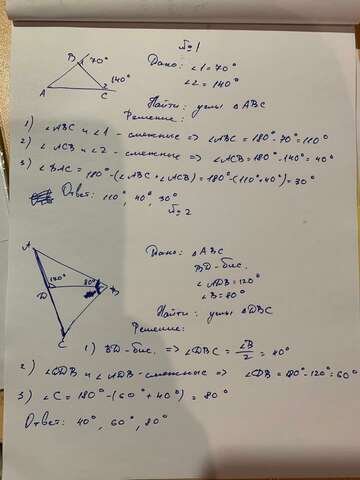 №1
B 1 70°
140°
A 2 C
Дано: ∠1=70°
∠2=140°
Найти: углы △ABC
Решение:
1) ∠ABC и ∠1 - смежные => ∠ABC=180°-70°=110°
2) ∠ACB и ∠2 - смежные => ∠ACB=180°-140°=40°
3) ∠BAC=180°-(∠ABC+∠ACB)=180°-(110°+40°)=30°
Ответ: 110°, 40°, 30°
№2
A
120° 80° B
D
C
Дано: △ABC
BD-бис.
∠ADB=120°
∠B=80°
Найти: углы △DBC
Решение:
1) BD-бис. => ∠DBC = ∠B/2 = 40°
2) ∠CDB и ∠ADB-смежные => ∠DB=180°-120°=60°
3) ∠C=180°-(60°+40°)=80°
Ответ: 40°, 60°, 80°